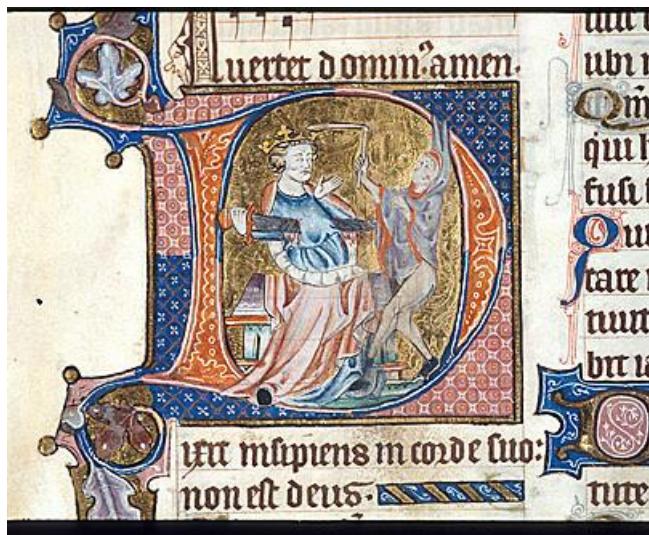 uertet domin᷒. amen.
Dixit insipiens in corde suo:
non est deus.
ubi
Qm̄
qui h
fusi
Qu
tare
turt
brt
ture